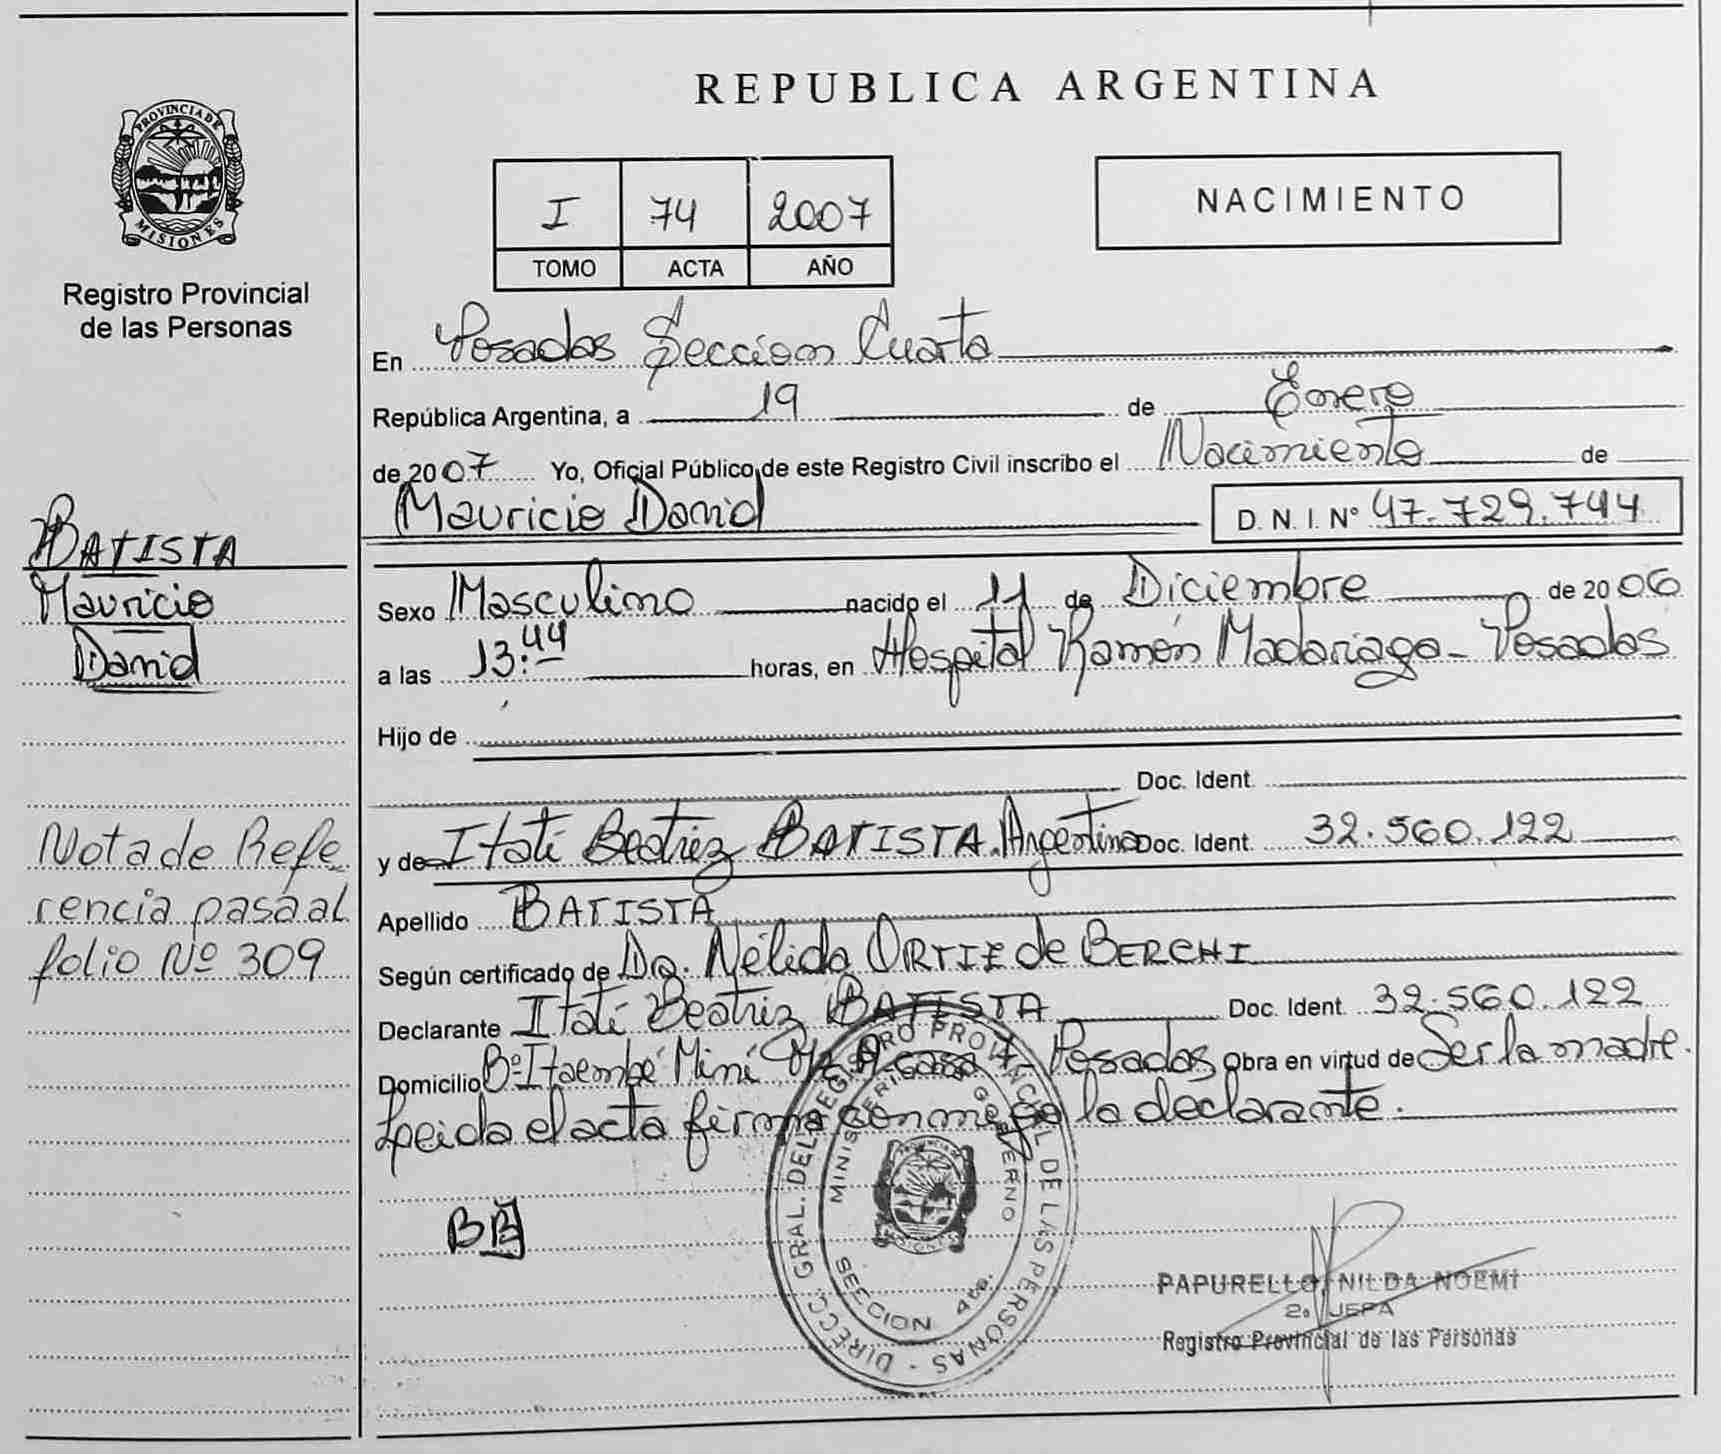 REPUBLICA ARGENTINA
PROVINCIA DE MISIONES
Registro Provincial
de las Personas
I 74 2007
TOMO ACTA AÑO
NACIMIENTO
En Posadas Seccion Cuarta
República Argentina, a 19 de Enero
de 2007 Yo, Oficial Público de este Registro Civil inscribo el Nacimiento de
Mauricio David D. N. I. Nº 47.729.744
BATISTA
Mauricio
David
Sexo Masculino nacido el 11 de Diciembre de 2006
a las 13:44 horas, en Hospital Ramón Madariaga - Posadas
Hijo de
Doc. Ident.
y de Itatí Beatriz BATISTA. Argentina Doc. Ident. 32.560.122
Nota de Refe
rencia pasa al
folio Nº 309
Apellido BATISTA
Según certificado de Dra. Nélida ORTIZ de BERCHI
Declarante Itatí Beatriz BATISTA Doc. Ident. 32.560.122
Domicilio Bº Itaembé Miní Mz A casa Posadas Obra en virtud de Ser la madre.
Leida el acta firma conmigo la declarante.
BB
DIRECC. GRAL. DEL REGISTRO PROVINCIAL DE LAS PERSONAS
MINISTERIO GOBIERNO
MISIONES
SECCION 4ta.
PAPURELLO, NILDA NOEMI
2º JEFA
Registro Provincial de las Personas